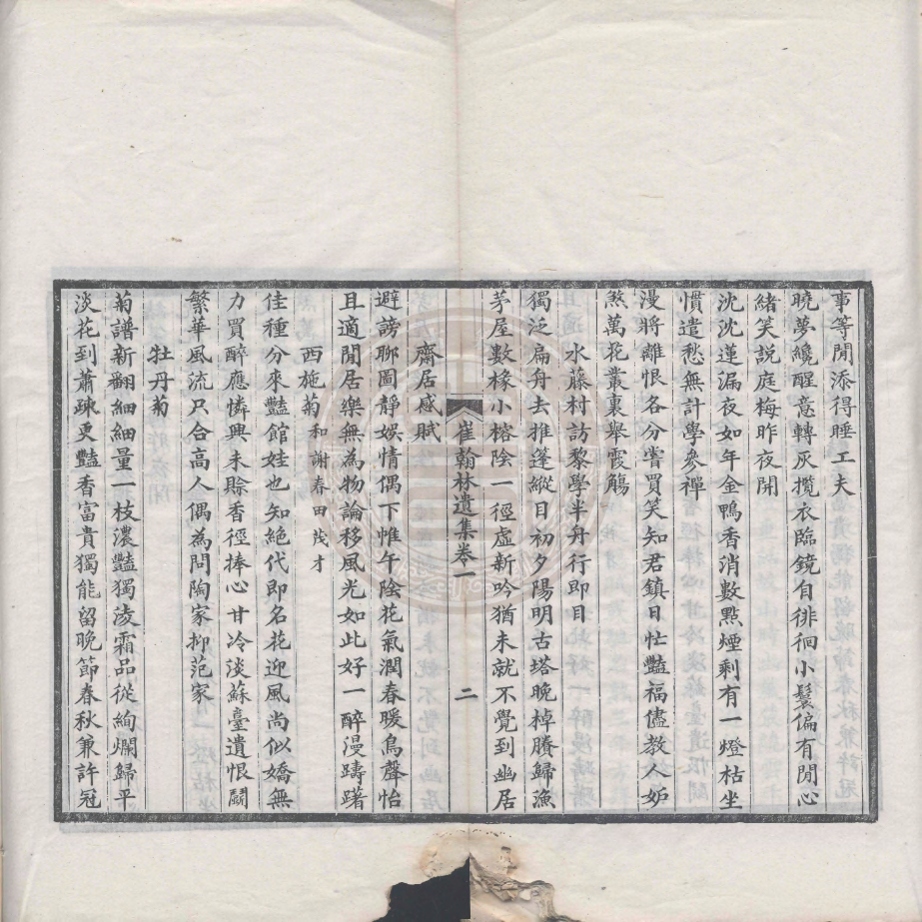 事等閒添得睡工夫
曉夢纔醒意轉灰攬衣臨鏡自徘徊小鬟偏有閒心
緒笑説庭梅昨夜開
沈沈蓮漏夜如年金鴨香消數點煙剩有一燈枯坐
慣遣愁無計學參禪
漫將離恨各分嘗買笑知君鎮日忙豔福儘教人妒
煞萬花叢裏舉霞觴
水藤村訪黎學半舟行即目
獨泛扁舟去推蓬縱目初夕陽明古塔晚棹賸歸漁
茅屋數椽小榕陰一徑虛新吟猶未就不覺到幽居
崔翰林遺集卷一
二
齋居感賦
避謗聊圖靜娛情偶下帷午陰花氣潤春暖鳥聲怡
且適閒居樂無為物論移風光如此好一醉漫躊躇
西施菊和謝春田茂才
佳種分來豔館娃也知絕代即名花迎風尚似嬌無
力買醉應憐興未賒香徑捧心甘冷淡蘇臺遺恨鬬
繁華風流只合高人偶為問陶家抑范家
牡丹菊
菊譜新翻細細量一枝濃豔獨淩霜品從絢爛歸平
淡花到蕭疎更豔香富貴獨能留晚節春秋兼許冠